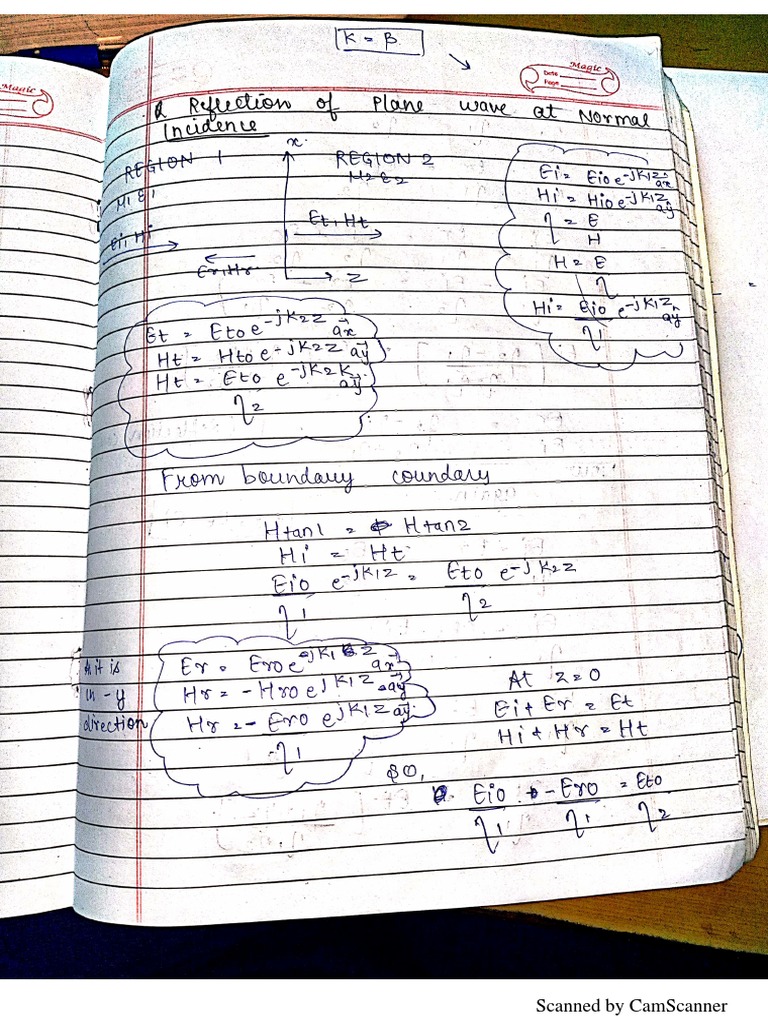 K = β
Magic
Magic
Date
Page
Reflection of Plane wave at Normal
Incidence
x
REGION 1
REGION 2
μ1 ε1
μ2 ε2
Ei, Hi
Et, Ht
Er, Hr
z
Ei = Eio e^-jK1z ax
Hi = Hio e^-jK1z ay
η = E
H
H = E
η
Hi = Eio e^-jK1z ay
η1
Et = Eto e^-jK2z ax
Ht = Hto e^-jK2z ay
Ht = Eto e^-jK2K ay
η2
From boundary coundary
Htan1 = Htan2
Hi = Ht
Eio e^-jK1z = Eto e^-jK2z
η1 η2
A it is
in -y
direction
Er = Ero e^jK1z ax
Hr = - Hro e^jK1z ay
Hr = - Ero e^jK1z ay
η1
At z = 0
Ei + Er = Et
Hi + Hr = Ht
SO,
Eio - Ero = Eto
η1 η1 η2
Scanned by CamScanner